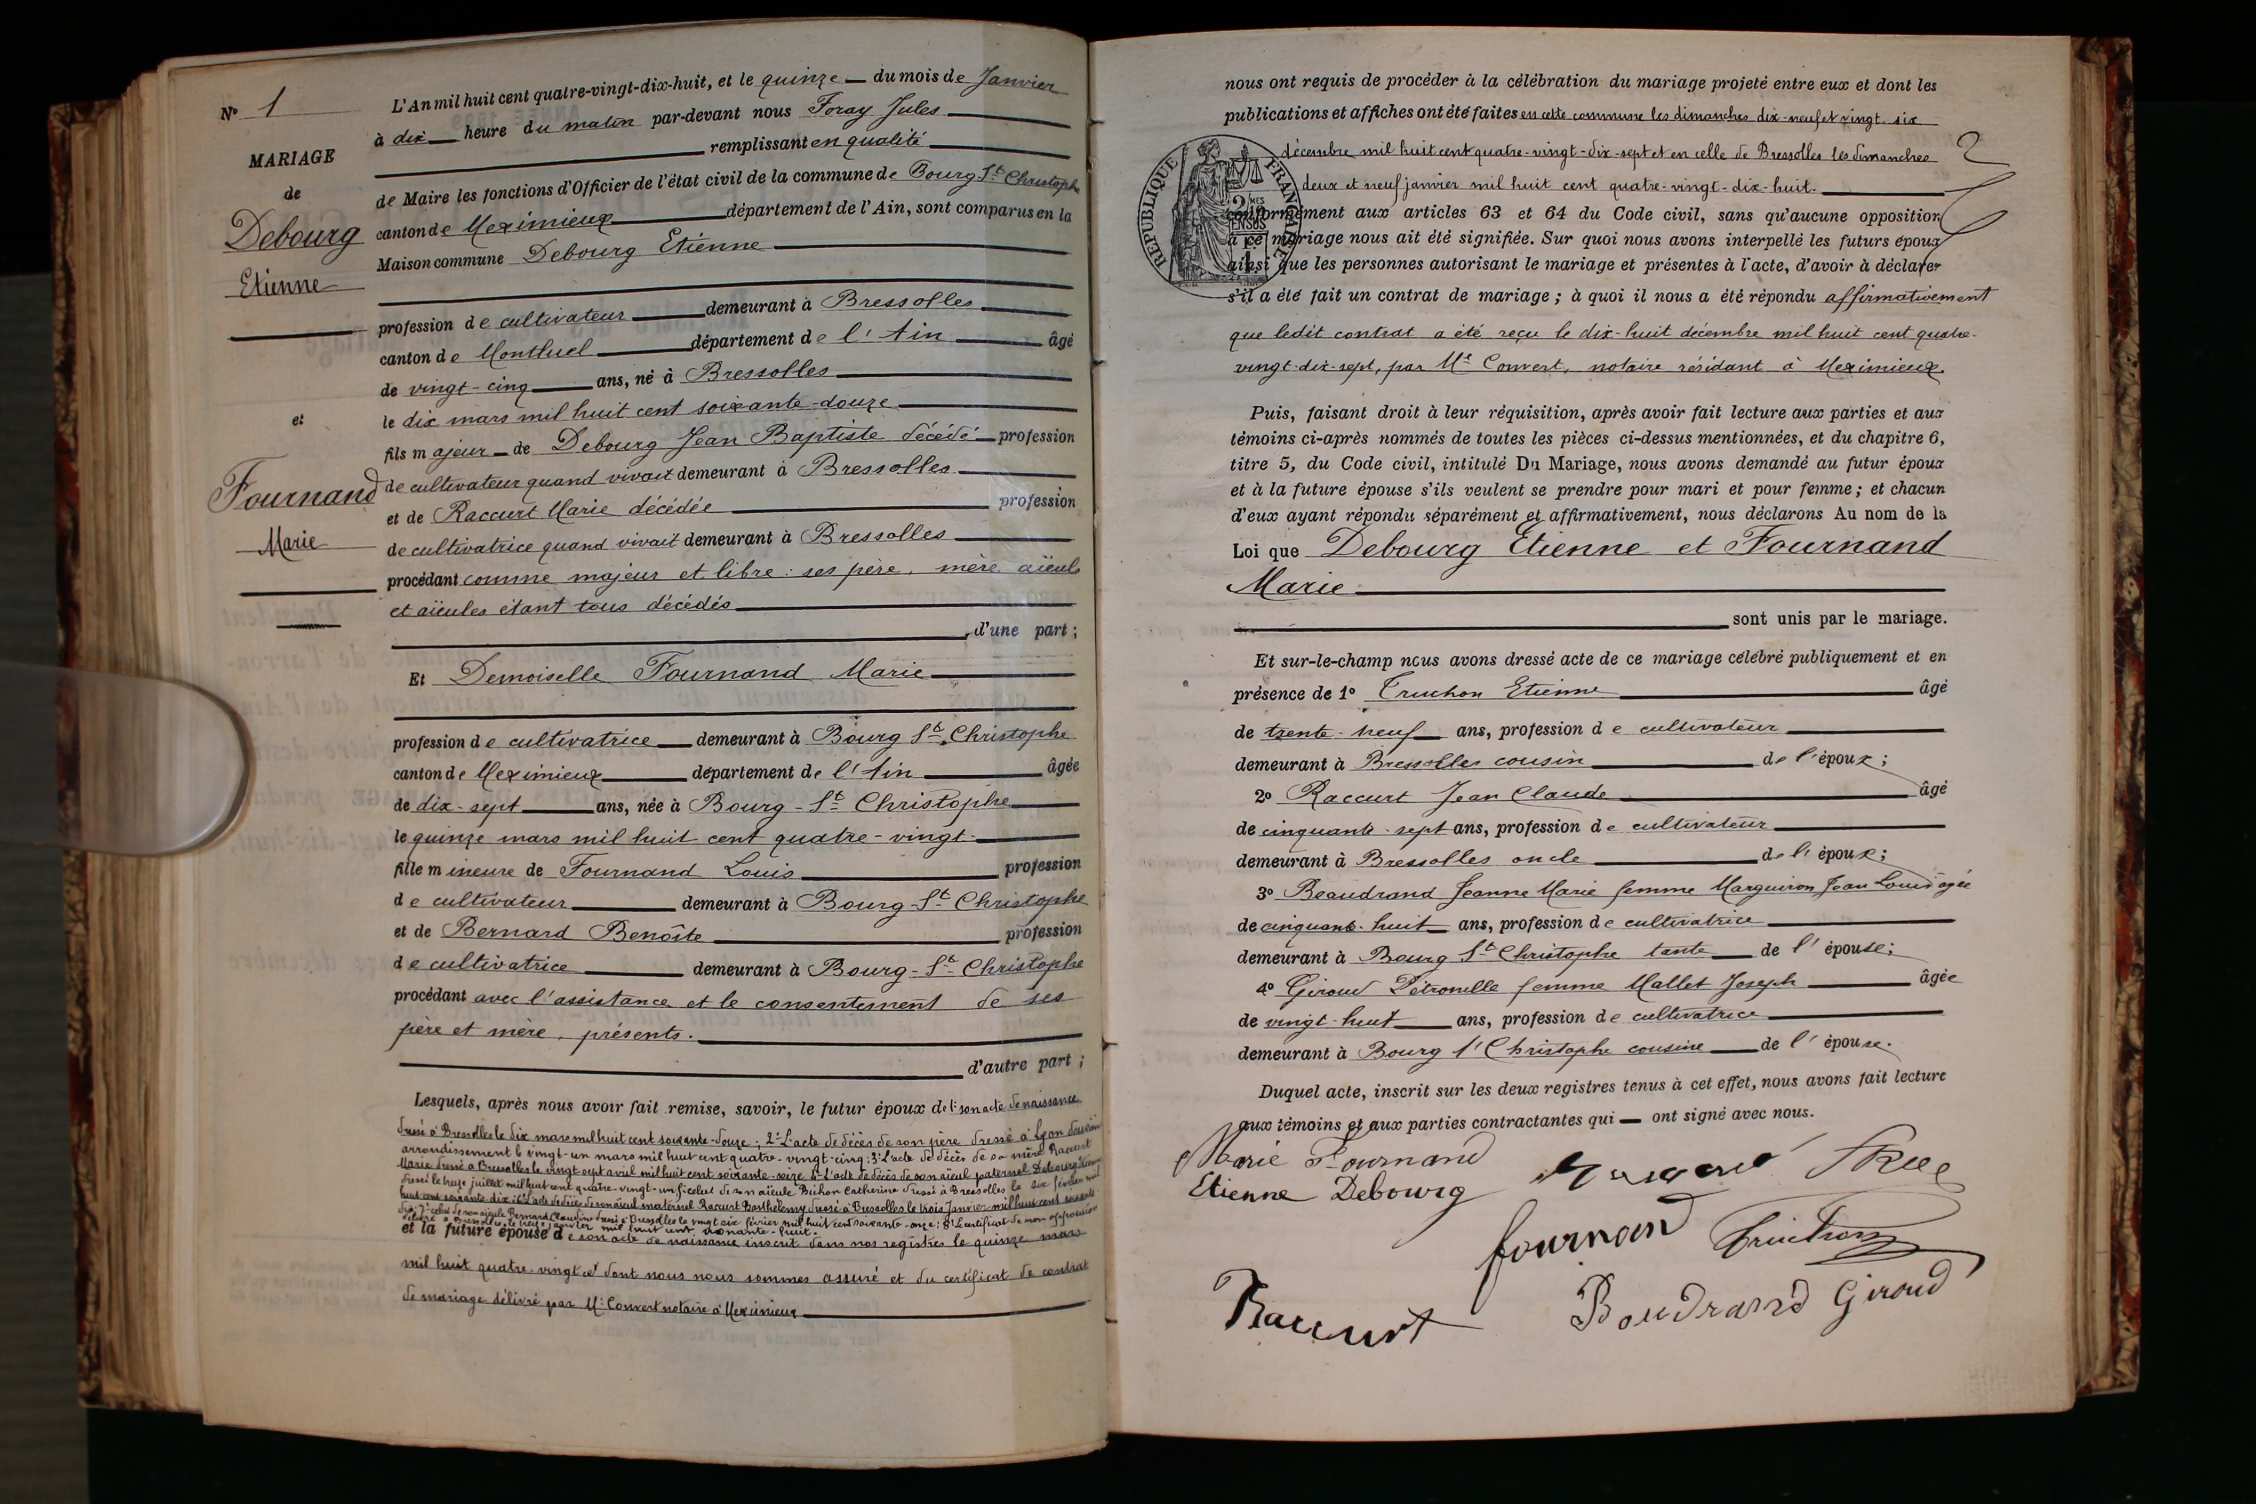 Nº 1
MARIAGE
de
Debourg
Etienne
et
Fournand
Marie
L'An mil huit cent quatre-vingt-dix-huit, et le quinze du mois de Janvier
à dix heure du matin par-devant nous Foray Jules
remplissant en qualité
de Maire les fonctions d'Officier de l'état civil de la commune de Bourg St Christophe
canton de Meximieux département de l'Ain, sont comparus en la
Maison commune Debourg Etienne
profession de cultivateur demeurant à Bressolles
canton de Montluel département de l'Ain âgé
de vingt-cinq ans, né à Bressolles
le dix mars mil huit cent soixante-douze
fils majeur de Debourg Jean Baptiste décédé profession
de cultivateur quand vivait demeurant à Bressolles
et de Raccurt Marie décédée profession
de cultivatrice quand vivait demeurant à Bressolles
procédant comme majeur et libre : ses père, mère aïeuls
et aïeules étant tous décédés
, d'une part ;
Et Demoiselle Fournand Marie
profession de cultivatrice demeurant à Bourg St Christophe
canton de Meximieux département de l'Ain âgée
de dix-sept ans, née à Bourg-St Christophe
le quinze mars mil huit cent quatre-vingt
fille mineure de Fournand Louis profession
de cultivateur demeurant à Bourg-St Christophe
et de Bernard Benoîte profession
de cultivatrice demeurant à Bourg-St Christophe
procédant avec l'assistance et le consentement de ses
père et mère, présents.
d'autre part ;
Lesquels, après nous avoir fait remise, savoir, le futur époux de 1º son acte de naissance
dressé à Bressolles le dix mars mil huit cent soixante-douze ; 2º L'acte de décès de son père dressé à Lyon deuxième
arrondissement le vingt-un mars mil huit cent quatre-vingt-cinq ; 3º L'acte de décès de sa mère Raccurt
Marie dressé à Bressolles le vingt sept avril mil huit cent soixante-seize 4º L'acte de décès de son aïeul paternel Debourg
dressé le treize juillet mil huit cent quatre-vingt-un 5º celui de son aïeule Bichon Catherine dressé à Bressolles le six février mil
huit cent soixante dix 6º L'acte de décès de son aïeul maternel Raccurt Barthélemy dressé à Bressolles le trois Janvier mil huit cent soixante
dix ; 7º celui de son aïeule Bernard Claudine dressé à Bressolles le vingt six février mil huit cent soixante-onze ; 8º Certificat de non opposition
délivré à Bressolles le treize janvier mil huit cent nonante-huit.
et la future épouse de son acte de naissance inscrit dans nos registres le quinze mars
mil huit quatre-vingt et dont nous nous sommes assuré et du certificat de contrat
de mariage délivré par Me Convert notaire à Meximieux
nous ont requis de procéder à la célébration du mariage projeté entre eux et dont les
publications et affiches ont été faites en cette commune les dimanches dix-neuf et vingt-six
décembre mil huit cent quatre-vingt-dix-sept et en celle de Bressolles les dimanches
deux et neuf janvier mil huit cent quatre-vingt-dix-huit.
RÉPUBLIQUE FRANÇAISE
conformément aux articles 63 et 64 du Code civil, sans qu'aucune opposition
à ce mariage nous ait été signifiée. Sur quoi nous avons interpellé les futurs époux
ainsi que les personnes autorisant le mariage et présentes à l'acte, d'avoir à déclarer
s'il a été fait un contrat de mariage ; à quoi il nous a été répondu affirmativement
que ledit contrat a été reçu le dix-huit décembre mil huit cent quatre-
vingt-dix-sept, par Me Convert, notaire résidant à Meximieux.
Puis, faisant droit à leur réquisition, après avoir fait lecture aux parties et aux
témoins ci-après nommés de toutes les pièces ci-dessus mentionnées, et du chapitre 6,
titre 5, du Code civil, intitulé Du Mariage, nous avons demandé au futur époux
et à la future épouse s'ils veulent se prendre pour mari et pour femme ; et chacun
d'eux ayant répondu séparément et affirmativement, nous déclarons Au nom de la
Loi que Debourg Etienne et Fournand
Marie
sont unis par le mariage.
Et sur-le-champ nous avons dressé acte de ce mariage célébré publiquement et en
présence de 1º Truchon Etienne âgé
de trente-neuf ans, profession de cultivateur
demeurant à Bressolles cousin de l'époux ;
2º Raccurt Jean Claude âgé
de cinquante-sept ans, profession de cultivateur
demeurant à Bressolles oncle de l'époux ;
3º Beaudrand Jeanne Marie femme Marguiron Jean Louis âgée
de cinquante-huit ans, profession de cultivatrice
demeurant à Bourg St Christophe tante de l'épouse ;
4º Giroud Pétronille femme Mallet Joseph âgée
de vingt-huit ans, profession de cultivatrice
demeurant à Bourg St Christophe cousine de l'épouse.
Duquel acte, inscrit sur les deux registres tenus à cet effet, nous avons fait lecture
aux témoins et aux parties contractantes qui ont signé avec nous.
Marie Fournand
Etienne Debourg
fournand Truchon
Raccurt Boudrand Giroud